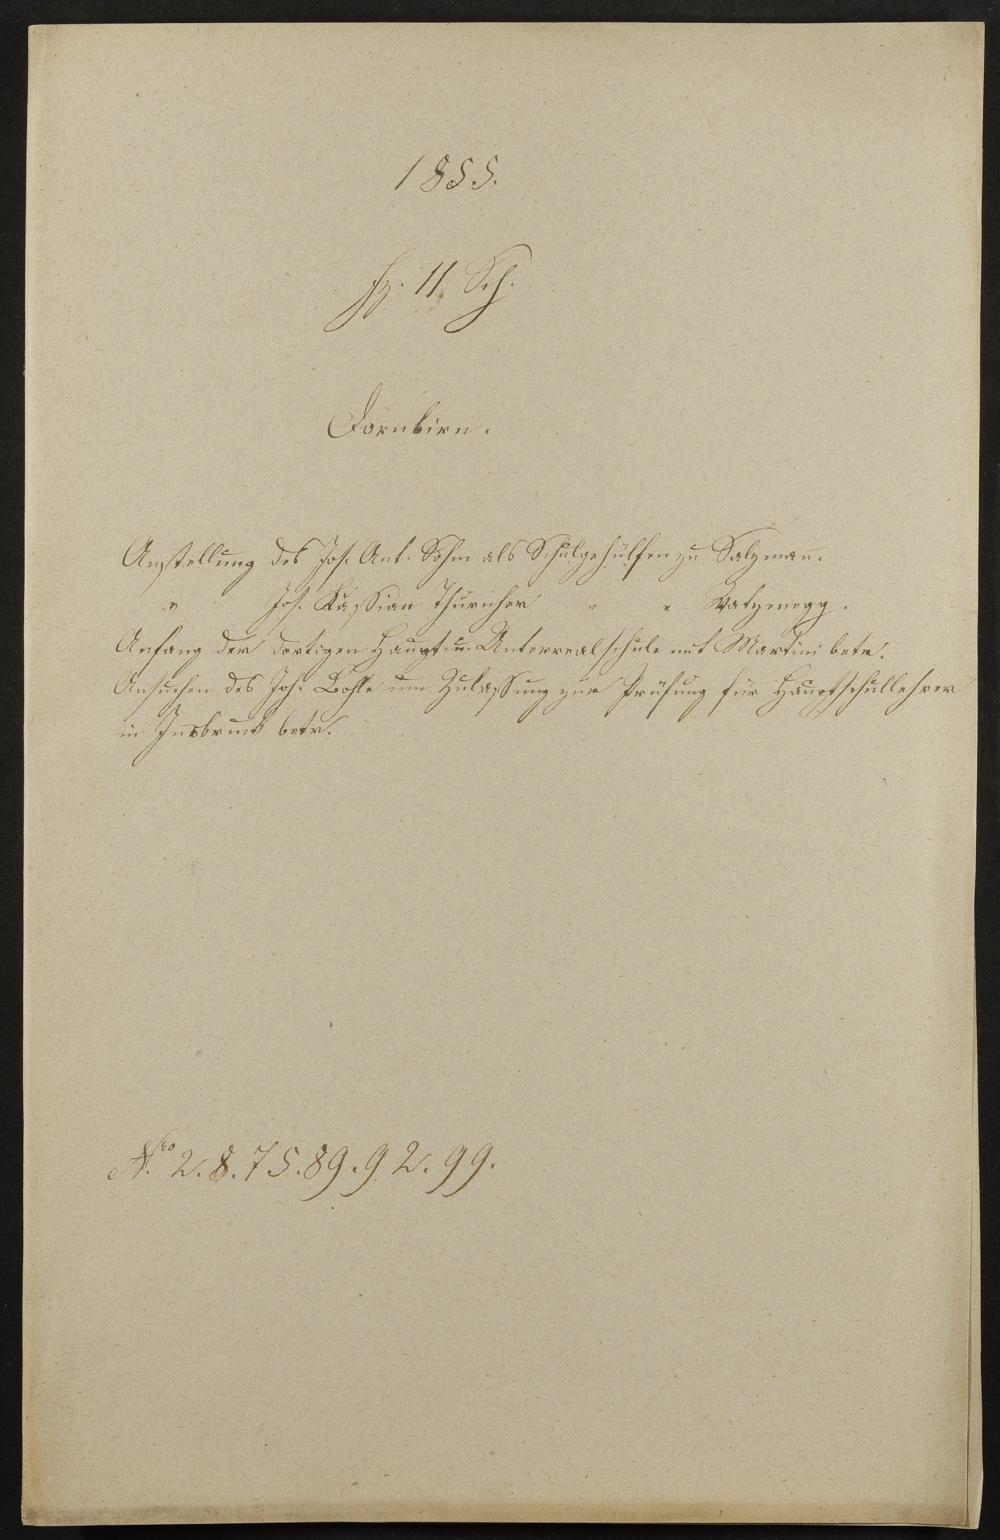 1855.
Fz. 11 Sch.
Dornbirn.
Anstellung des Jos. Ant. Sohm als Schulgehülfen zu Salzman.
" Joh. Kassian Thurnher " " Watzenegg.
Anfang der dortigen Haupt- u. Unterrealschule mit Martini betr.
Ansuchen des Joh. Bohle um Zulassung zur Prüfung für Hauptschullehrer
in Insbruck betr.
Nro 2. 8. 75. 89. 92. 99.